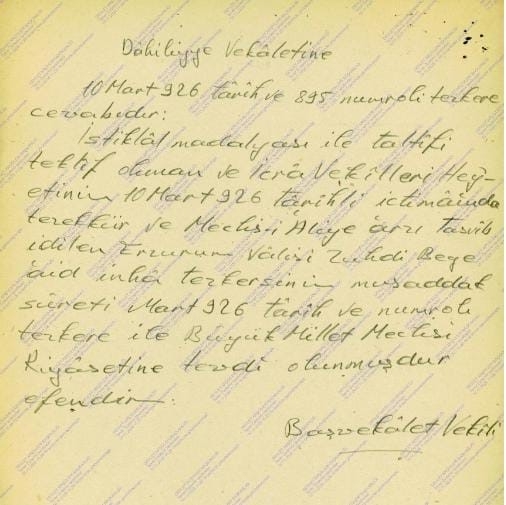 Dâhiliyye Vekâletine
10 Mart 926 târih ve 895 numroli tezkere
cevabıdır:
İstiklâl madalyası ile taltifi
teklif olunan ve İcrâ Vekilleri Hey-
etinin 10 Mart 926 târihli ictimâında
tezekkür ve Meclis-i Âliye arzı tasvib
idilen Erzurum Vâlisi Zühdi Beye
âid inhâ tezkersinin musaddak
sûreti Mart 926 târih ve numrolı
tezkere ile Büyük Millet Meclisi
Riyâsetine tevdi olunmuşdur
efendim.
Başvekâlet Vekili